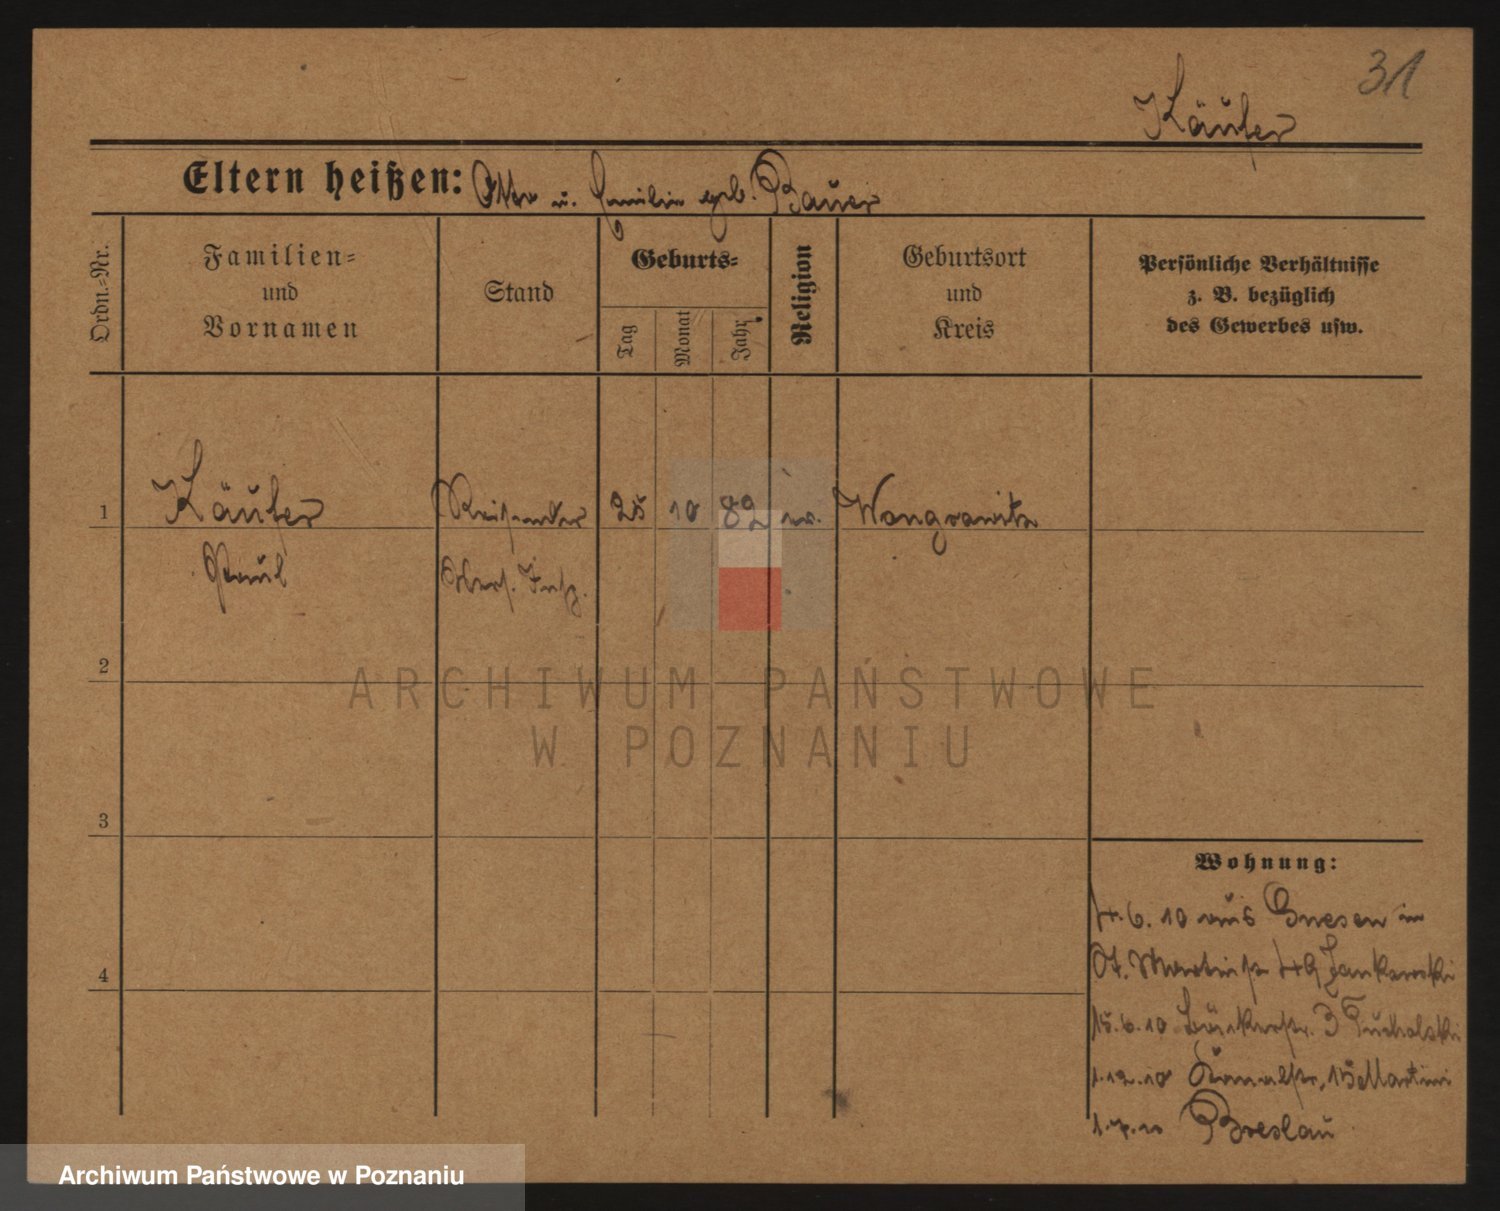 31
Käufer
Eltern heißen: Otto u. Emilie geb. Bauer
Ordn.-Nr.
Familien-
und
Vornamen
Stand
Geburts-
Tag
Monat
Jahr
Religion
Geburtsort
und
Kreis
Persönliche Verhältnisse
z. B. bezüglich
des Gewerbes usw.
1 Käufer Reisender 25 10 82 Wongrowitz
Paul
2
3
4
ARCHIWUM PAŃSTWOWE
W POZNANIU
Wohnung:
4.6.10 aus Gnesen in
St. Martinstr 49 Jankowski
15.6.10 Bäckerstr. 3 Tucholski
1.12.10 Kanalstr. 15 Martini
Breslau
Archiwum Państwowe w Poznaniu